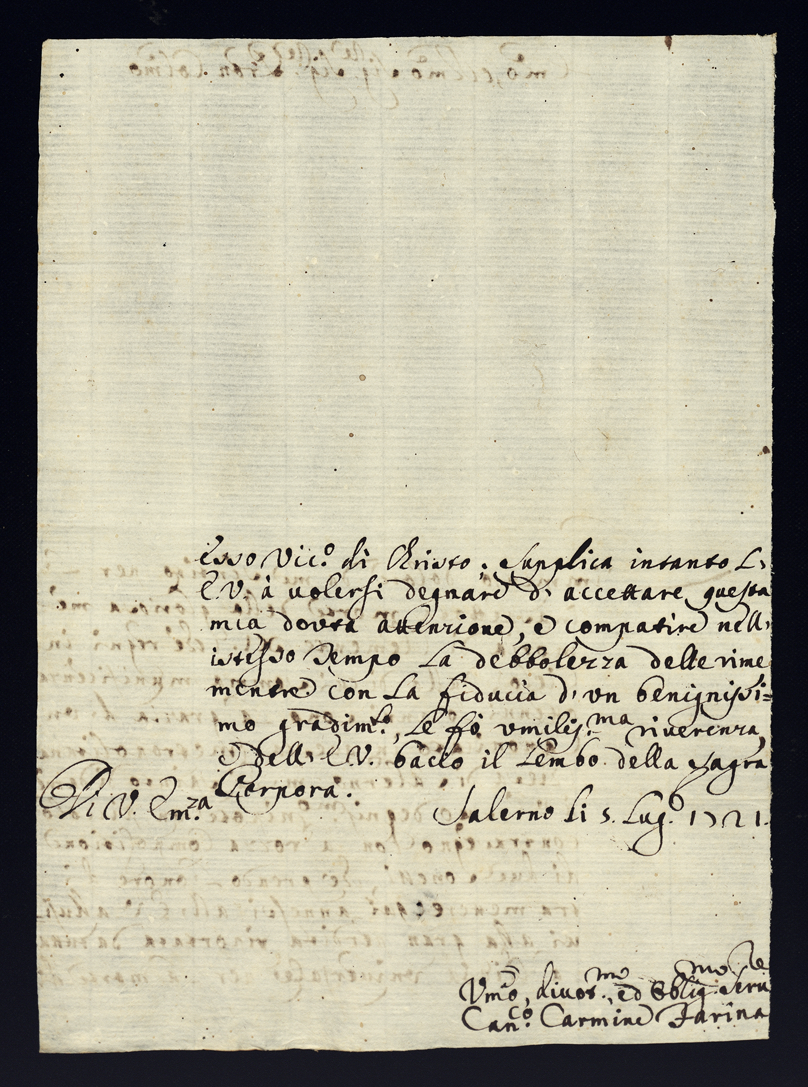 esso Vic.º di Christo; Supplica intanto L'
E V. à volersi degnare d'accettare questa
mia dovta attenzione, e compatire nell'
istesso Tempo La debbolezza delle rime
mentre con La fiducia d'vn benignissi=
mo gradim.to, Le fò vmiliss.ma riverenza,
e dell'E V. bacio il Lembo della sagra
Porpora.
Di V. Em.za
Salerno Li 5. Lug.º 1721.
Vm̃o, divot.mo, ed obblig.mo Seru.re
Can.co Carmine Farina